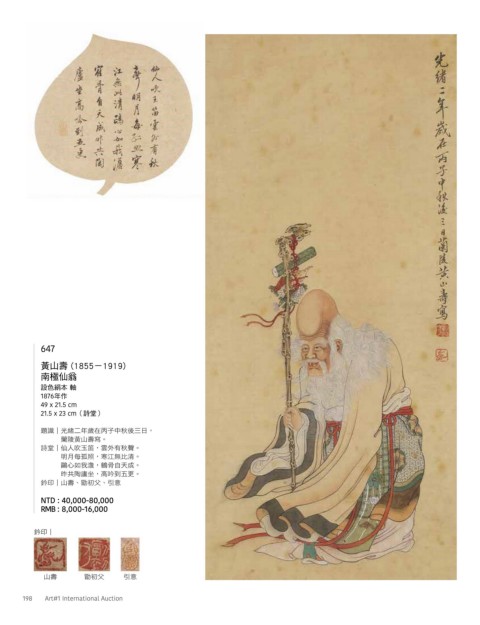 仙人吹玉笛雲外有秋
聲明月每孤照寒
江無比清鷗心如我澹
鶴骨自天成昨共陶
廬坐高吟到五更
光緒二年歲在丙子中秋後三日蘭陵黃山壽寫
647
黃山壽 (1855－1919)
南極仙翁
設色絹本 軸
1876年作
49 x 21.5 cm
21.5 x 23 cm（詩堂）
題識｜光緒二年歲在丙子中秋後三日，
蘭陵黃山壽寫。
詩堂｜仙人吹玉笛，雲外有秋聲。
明月每孤照，寒江無比清。
鷗心如我澹，鶴骨自天成。
昨共陶廬坐，高吟到五更。
鈐印｜山壽、勖初父、引意
NTD : 40,000-80,000
RMB : 8,000-16,000
鈐印｜
山壽 勖初父 引意
198 Art#1 International Auction